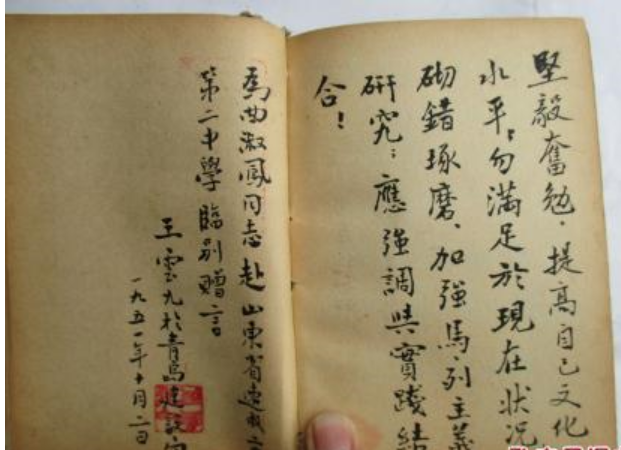 堅毅奮勉,提高自己文化
水平,勿滿足於現在狀況
砌錯琢磨、加強馬、列主義
研究;應強調與實踐結
合!
為曲淑鳳同志赴山東省速成
第二中學臨別贈言
王雲九於青島建設
一九五一年十月二日